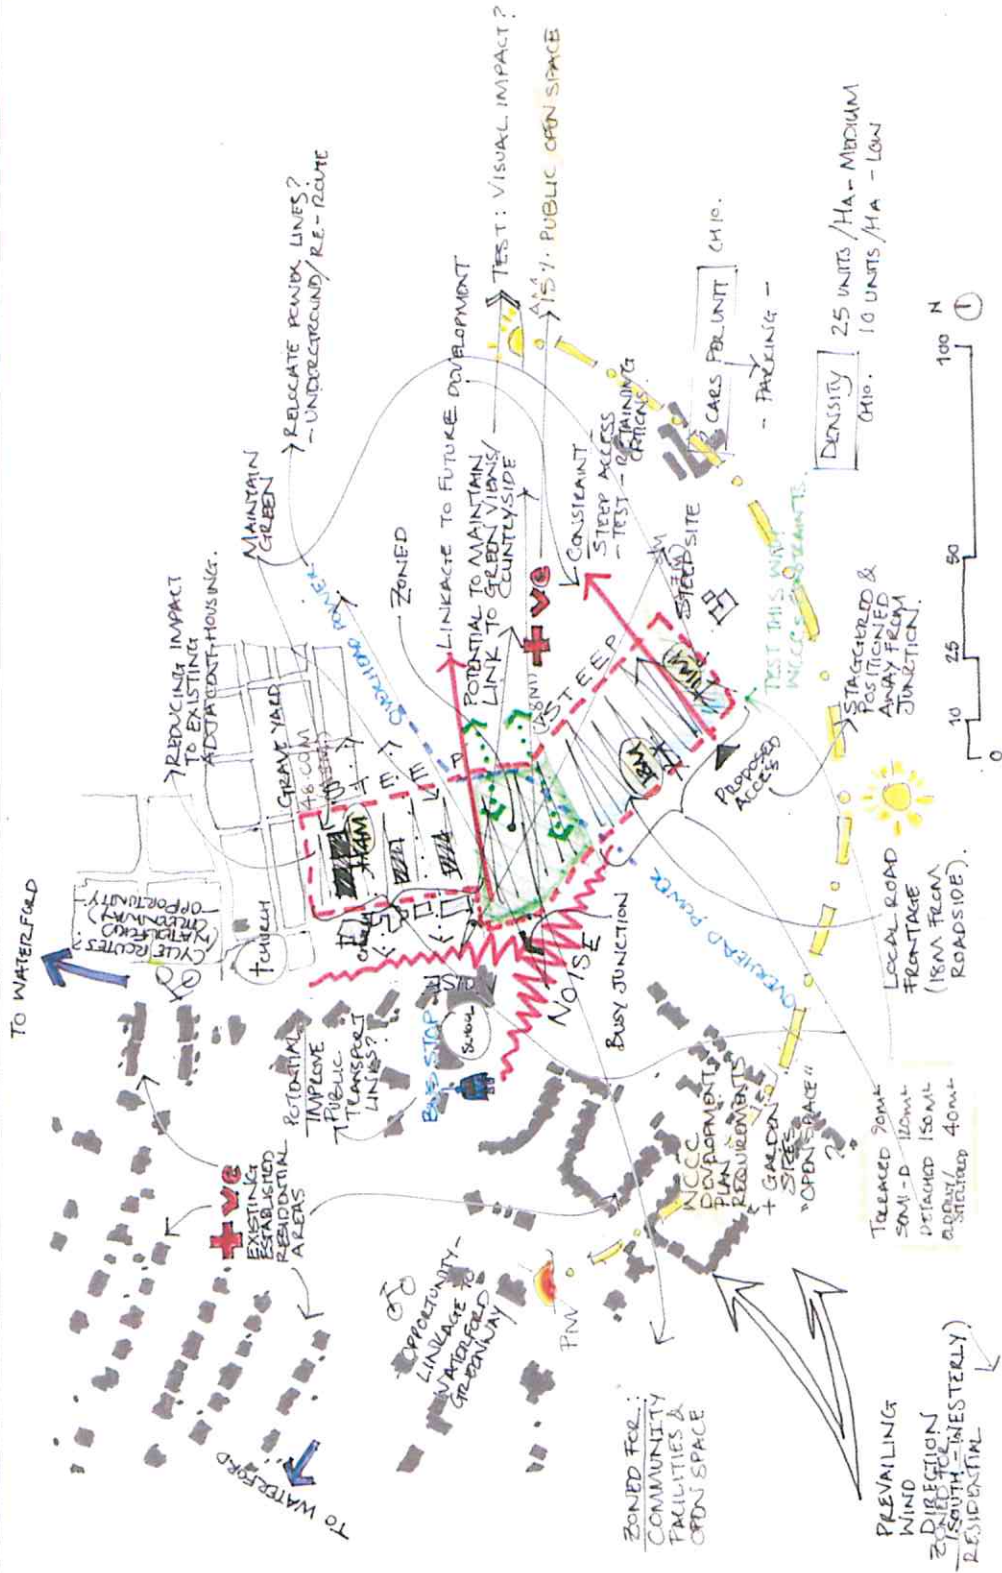 TO WATERFORD
CYCLE ROUTES?
(WATERFORD
GREENWAY)
- OPPORTUNITY -
CHURCH
REDUCING IMPACT
TO EXISTING
ADJACENT HOUSING.
GRAVE YARD
MAINTAIN
GREEN
RELOCATE POWER LINES?
- UNDERGROUND / RE-ROUTE
OVERHEAD POWER
ZONED
LINKAGE TO FUTURE DEVELOPMENT
POTENTIAL TO MAINTAIN
LINK TO GREEN VIEWS/
COUNTRYSIDE
TEST: VISUAL IMPACT?
15% PUBLIC OPEN SPACE
AM
+ve
CONSTRAINT
STEEP ACCESS
- TEST - RETAINING
OPTIONS.
STEEP
STEEP SITE
STEEP
CARS PER UNIT
CH10.
- PARKING -
DENSITY
CH10.
25 UNITS/HA - MEDIUM
10 UNITS/HA - LOW
TEST THIS WITH
WCCC'S CONSTRAINTS.
PROPOSED
ACCESS
STAGGERED &
POSITIONED
AWAY FROM
JUNCTION.
LOCAL ROAD
FRONTAGE
(18M FROM
ROADSIDE).
0 10 25 50 100
N
NOISE
BUSY JUNCTION
OVERHEAD POWER
SCHOOL
BUS STOP
POTENTIAL
IMPROVE
PUBLIC
TRANSPORT
LINKS?
+ve
EXISTING
ESTABLISHED
RESIDENTIAL
AREAS
TO WATERFORD
OPPORTUNITY -
LINKAGE TO
WATERFORD
GREENWAY
PM
WCCC
DEVELOPMENT
PLAN
REQUIREMENTS
+ GARDEN
SIZES
"OPEN SPACE"
TERRACED 90m²
SEMI-D 120m²
DETACHED 150m²
SHELTERED 40m²
ZONED FOR:
COMMUNITY
FACILITIES &
OPEN SPACE
PREVAILING
WIND
DIRECTION
(SOUTH-WESTERLY)
ZONED FOR
RESIDENTIAL